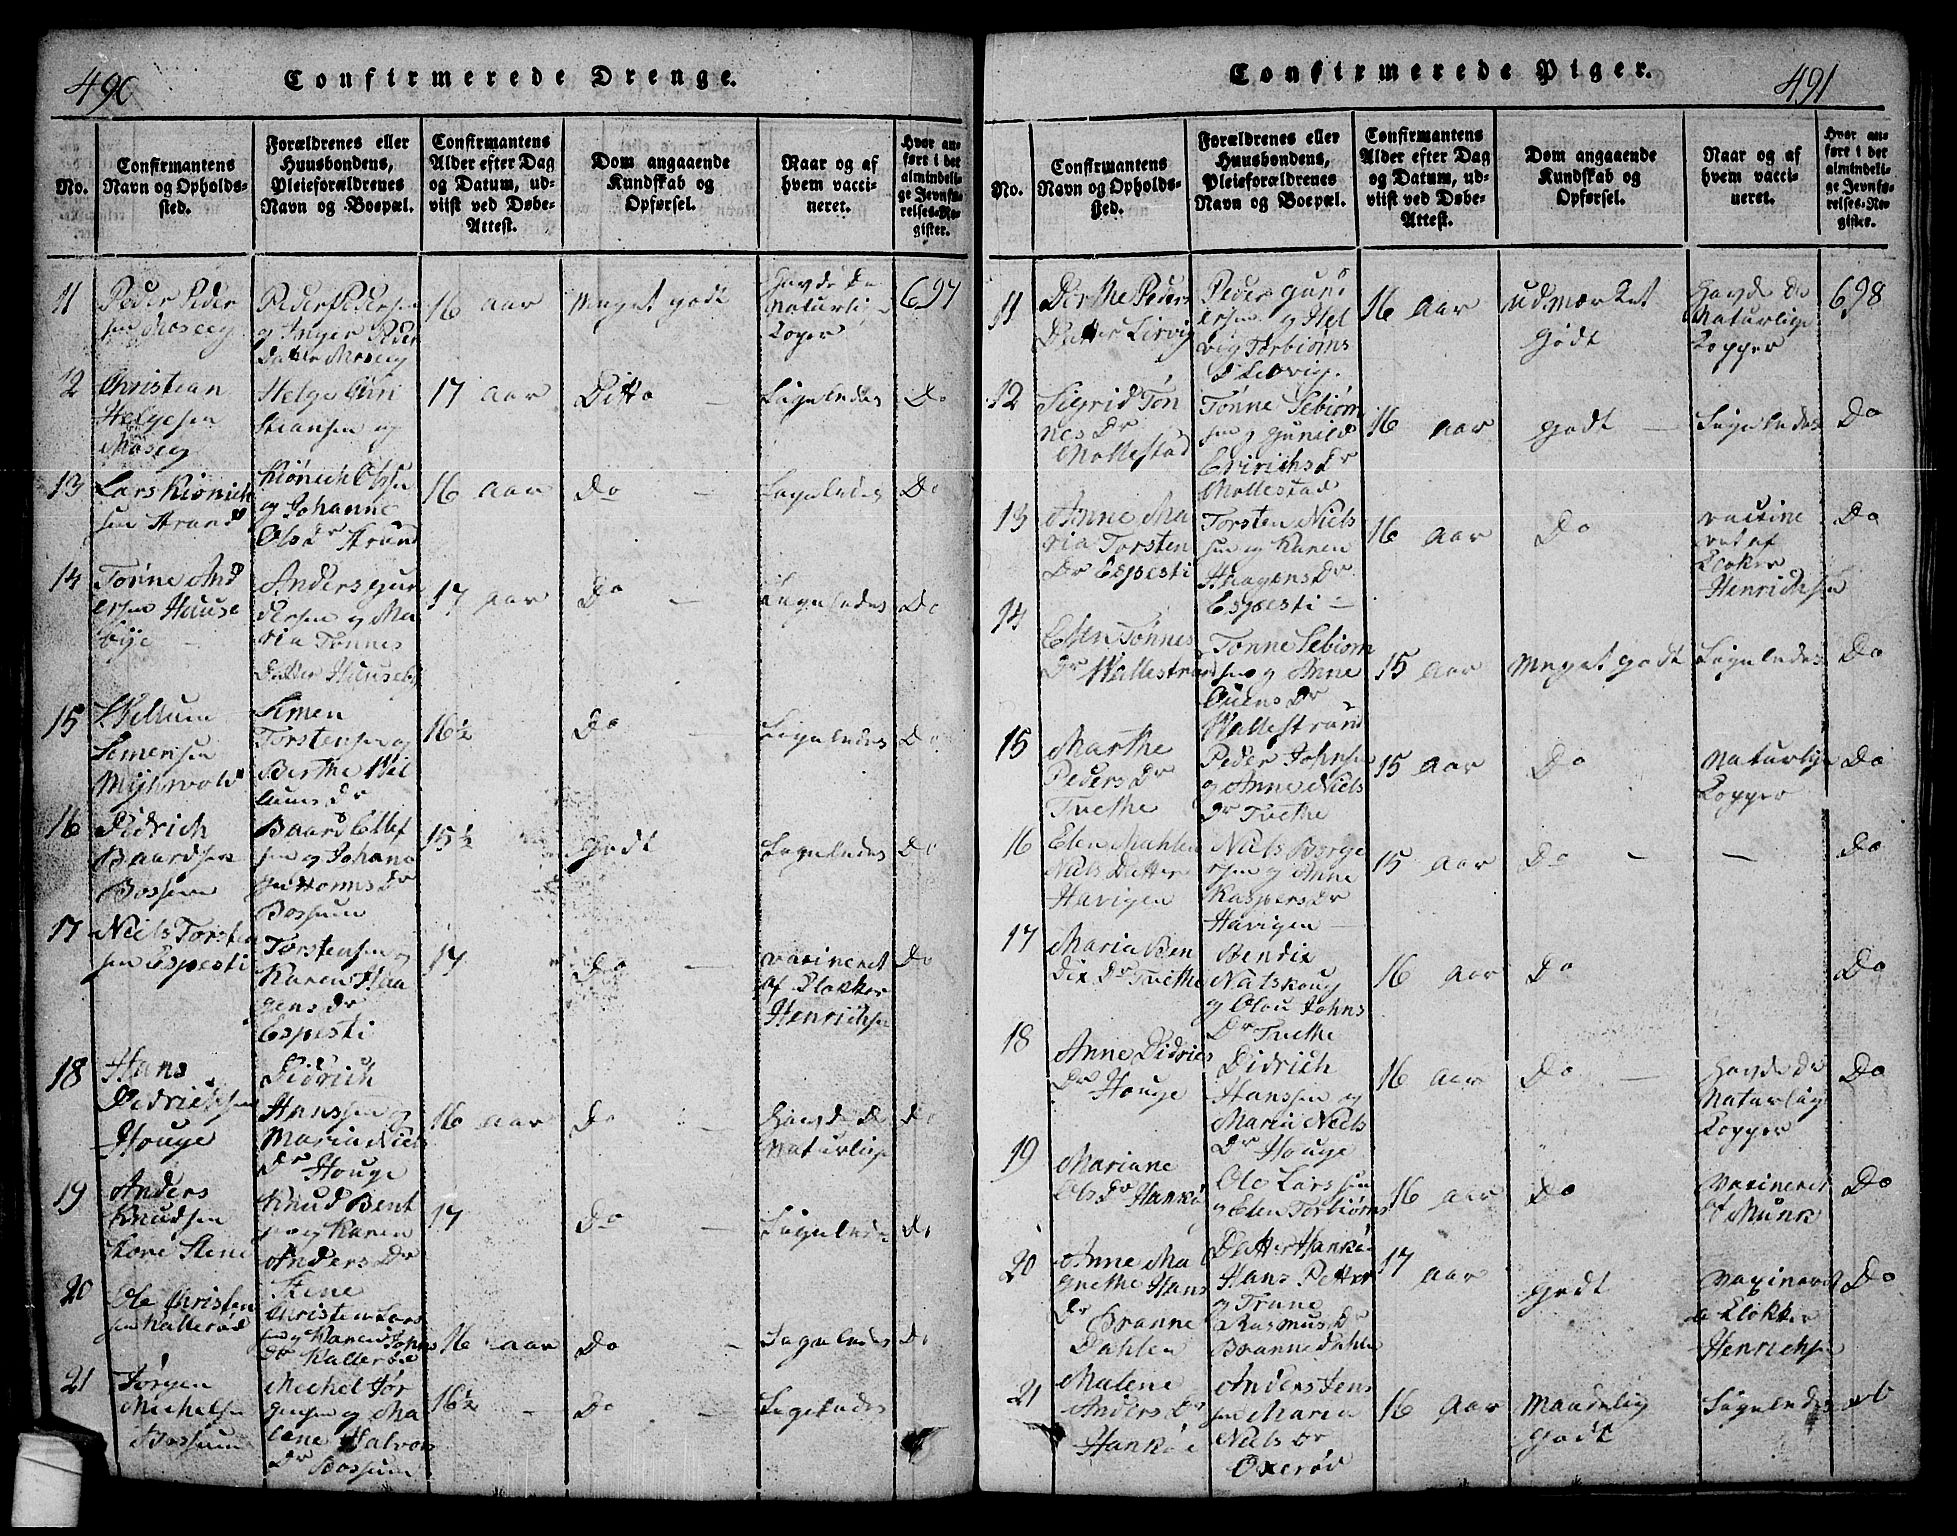 490
Confirmerede Drenge.
No.
Confirmantens
Navn og Opholds-
sted.
Forældrenes eller
Huusbondens,
Pleieforældrenes
Navn og Boepæl.
Confirmantens
Alder efter Dag
og Datum, ud-
viist ved Døbe-
Attest.
Dom angaaende
Kundskab og
Opførsel.
Naar og af
hvem vacci-
neret.
Hvor an-
ført i det
almindeli-
ge Jevnfø-
relses-Re-
gister.
11
Peder Peder
sen Moseeg
Peder Pedersen
og Inger Peder
Datter Moseeg
16 aar
Meget godt
Havde De
Naturli
Koper
697
12
Christian
Helgesen
Moseeg
Helge Chri
stiansen og
17 aar
Ditto
Ligeledes
Do
13
Lars Kiönich
sen Strand
Kiönich Olsen
og Johanne
Olsdr Strand
16 aar
Do
Ligeledes
Do
14
Tønne And
ersen Hause
bye
Anders Gun
dersen og Ma
ria Tønnes
Datter Hauseby
17 aar
Do
Ligeledes
Do
15
Villum
Simensen
Myhrvold
Simen
Torstensen og
Berthe Vil
lumsdr
16½
Do
Ligeledes
Do
16
Didrich
Baardsen
Bossum
Baard Ellef
sen og Johana
Bossum
15½
Godt
Ligeledes
Do
17
Niels Torsten
sen Espesti
Torstensen og
Karen Haa
gensdr
Espesti
17
Do
vaxineret
af Klokker
Henrichsen
Do
18
Hans
Didrichsen
Houge
Didrich
Hanssen og
Maria Niels
Dr Houge
16 aar
Do
Havde De
Naturlige
Do
19
Anders
Knudsen
Store Stene
Knud Bent
sen og Karen
Anders Dr
Stene
17
Do
Ligeledes
Do
20
Ole Christen
sen Kallerød
Christen Lars
sen og Karen Johns
Dr Kallerød
16 aar
Do
Ligeledes
Do
21
Jørgen
Michelsen
Bossum
Michel Jør
gensen og Ma
lene Halvors
Dr Bossum
16½
Do
Ligeledes
Confirmerede Piger.
491
No.
Confirmantens
Navn og Opholds-
sted.
Forældrenes eller
Huusbondens,
Pleieforældrenes
Navn og Boepæl.
Confirmantens
Alder efter Dag
og Datum, ud-
viist ved Døbe-
Attest.
Dom angaaende
Kundskab og
Opførsel.
Naar og af
hvem vacci-
neret.
Hvor an-
ført i det
almindeli-
ge Jevnfø-
relses-Re-
gister.
11
Dorthe Peders
Datter Lervig
Peder Gund
ersen og Hel
vig Torbiørns
D Lervig.
16 aar
udmærket
Godt
Havde De
Naturlige
Kopper
698
12
Sigrid Tøn
nes Dr
Mollestad
Tønne Sebiørn
sen og Gunild
Erichs Dr
Mollestad
16 aar
godt
Ligeledes
Do
13
Anne Ma
ria Torsten
Dr Espesti
Torsten Niels
sen og Karen
Haagens Dr
Espesti
16 aar
Do
vaxine
ret af
Klokker
Henrichsen
Do
14
Elen Tønnes
Dr Wallestrand
Tønne Sebiørn
sen og Anne
Ouens Dr
Wallestrand
15 aar
Meget godt
Ligeledes
Do
15
Marthe
Peders Dr
Tvethe
Peder Johnsen
og Anne Niels
Dr Tvethe
15 aar
Do
Naturlige
Kopper
Do
16
Elen Mahlen
Niels Datter
Havigen
Niels Borge
rsen og Anne
Kaspers Dr
Havigen
15 aar
Do
Do
17
Maria Ben
dix Dr Tvethe
Bendix
Natskoug
og Olou Johns
Dr Tvethe
16 aar
Do
Do
18
Anne Didrics
Dr Houge
Didrich
Hanssen og
Maria Niels
Dr Houge
16 aar
Do
Havde De
Naturlige
Kopper
Do
19
Mariane
Ols Dr Hankø
Ole Larssen
og Elen Torbiørns
Datter Hankø
16 aar
Do
Vaxineret
af Munk
Do
20
Anne Ma
grethe Hans
Dr
Branne
Dahlen
Hans Petter
og Trune
Rasmus Dr
Brannedahlen
17 aar
Godt
Vaxineret
Klokker
Henrichsen
Do
21
Malene
Anders Dr
Hankøe
Anders Jens
sen Maria
Niels Dr
Oxerød
16 aar
Maadelig
godt
Ligeledes